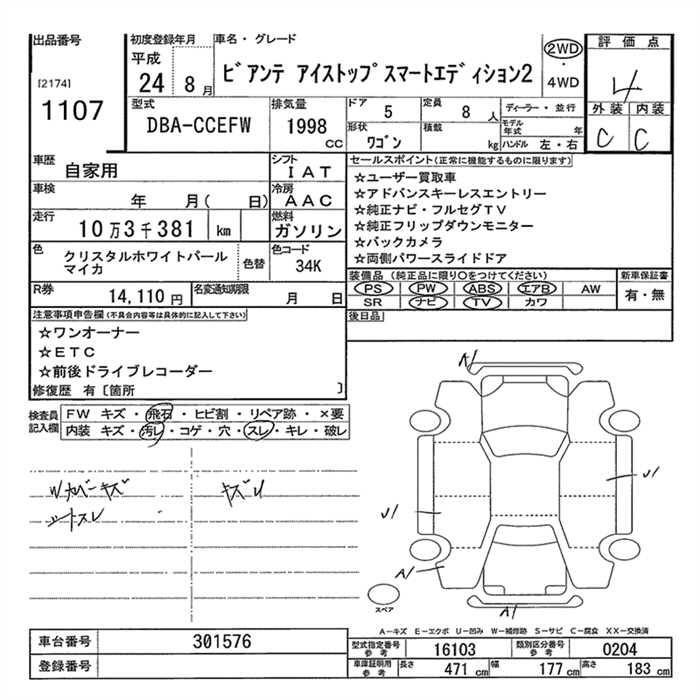 出品番号 初度登録年月 車名・グレード 評価点
[2174] 平成 2WD
1107 24 8月 ビアンテ アイストップスマートエディション2 ・ 4
4WD
型式 排気量 ドア 5 定員 8人 ディーラー・並行 外装 内装
DBA-CCEFW 1998cc 形状 ワゴン 積載 kg モデル年式 年 C C
ハンドル 左・右
車歴 自家用 シフト IAT セールスポイント(正常に機能するものに限ります)
車検 年 月( 日) 冷房 AAC ☆ユーザー買取車
☆アドバンスキーレスエントリー
走行 10万3千381 km 燃料 ガソリン ☆純正ナビ・フルセグTV
☆純正フリップダウンモニター
色 クリスタルホワイトパール 色替 色コード ☆バックカメラ
マイカ 34K ☆両側パワースライドドア
装備品(純正品に限り○をつけてください) 新車保証書
R券 14,110円 名変通知期限 月 日 PS PW ABS エアB AW 有・無
SR ナビ TV カワ
注意事項申告欄(不具合内容等は具体的に記入して下さい) 後日品
☆ワンオーナー
☆ETC
☆前後ドライブレコーダー
修復歴 有〔箇所 〕
検査員 FW キズ・飛石・ヒビ割・リペア跡・×要
記入欄 内装 キズ・汚レ・コゲ・穴・スレ・キレ・破レ
A1
Wカバーキズ キズU
シートスレ
U1
U1
A1
A1
スペア
A-キズ E-エクボ U-凹み W-補修跡 S-サビ C-腐食 XX-交換済
車台番号 301576 型式指定番号 参考 16103 類別区分番号 参考 0204
登録番号 車庫証明用 参考 長さ 471cm 幅 177cm 高さ 183cm